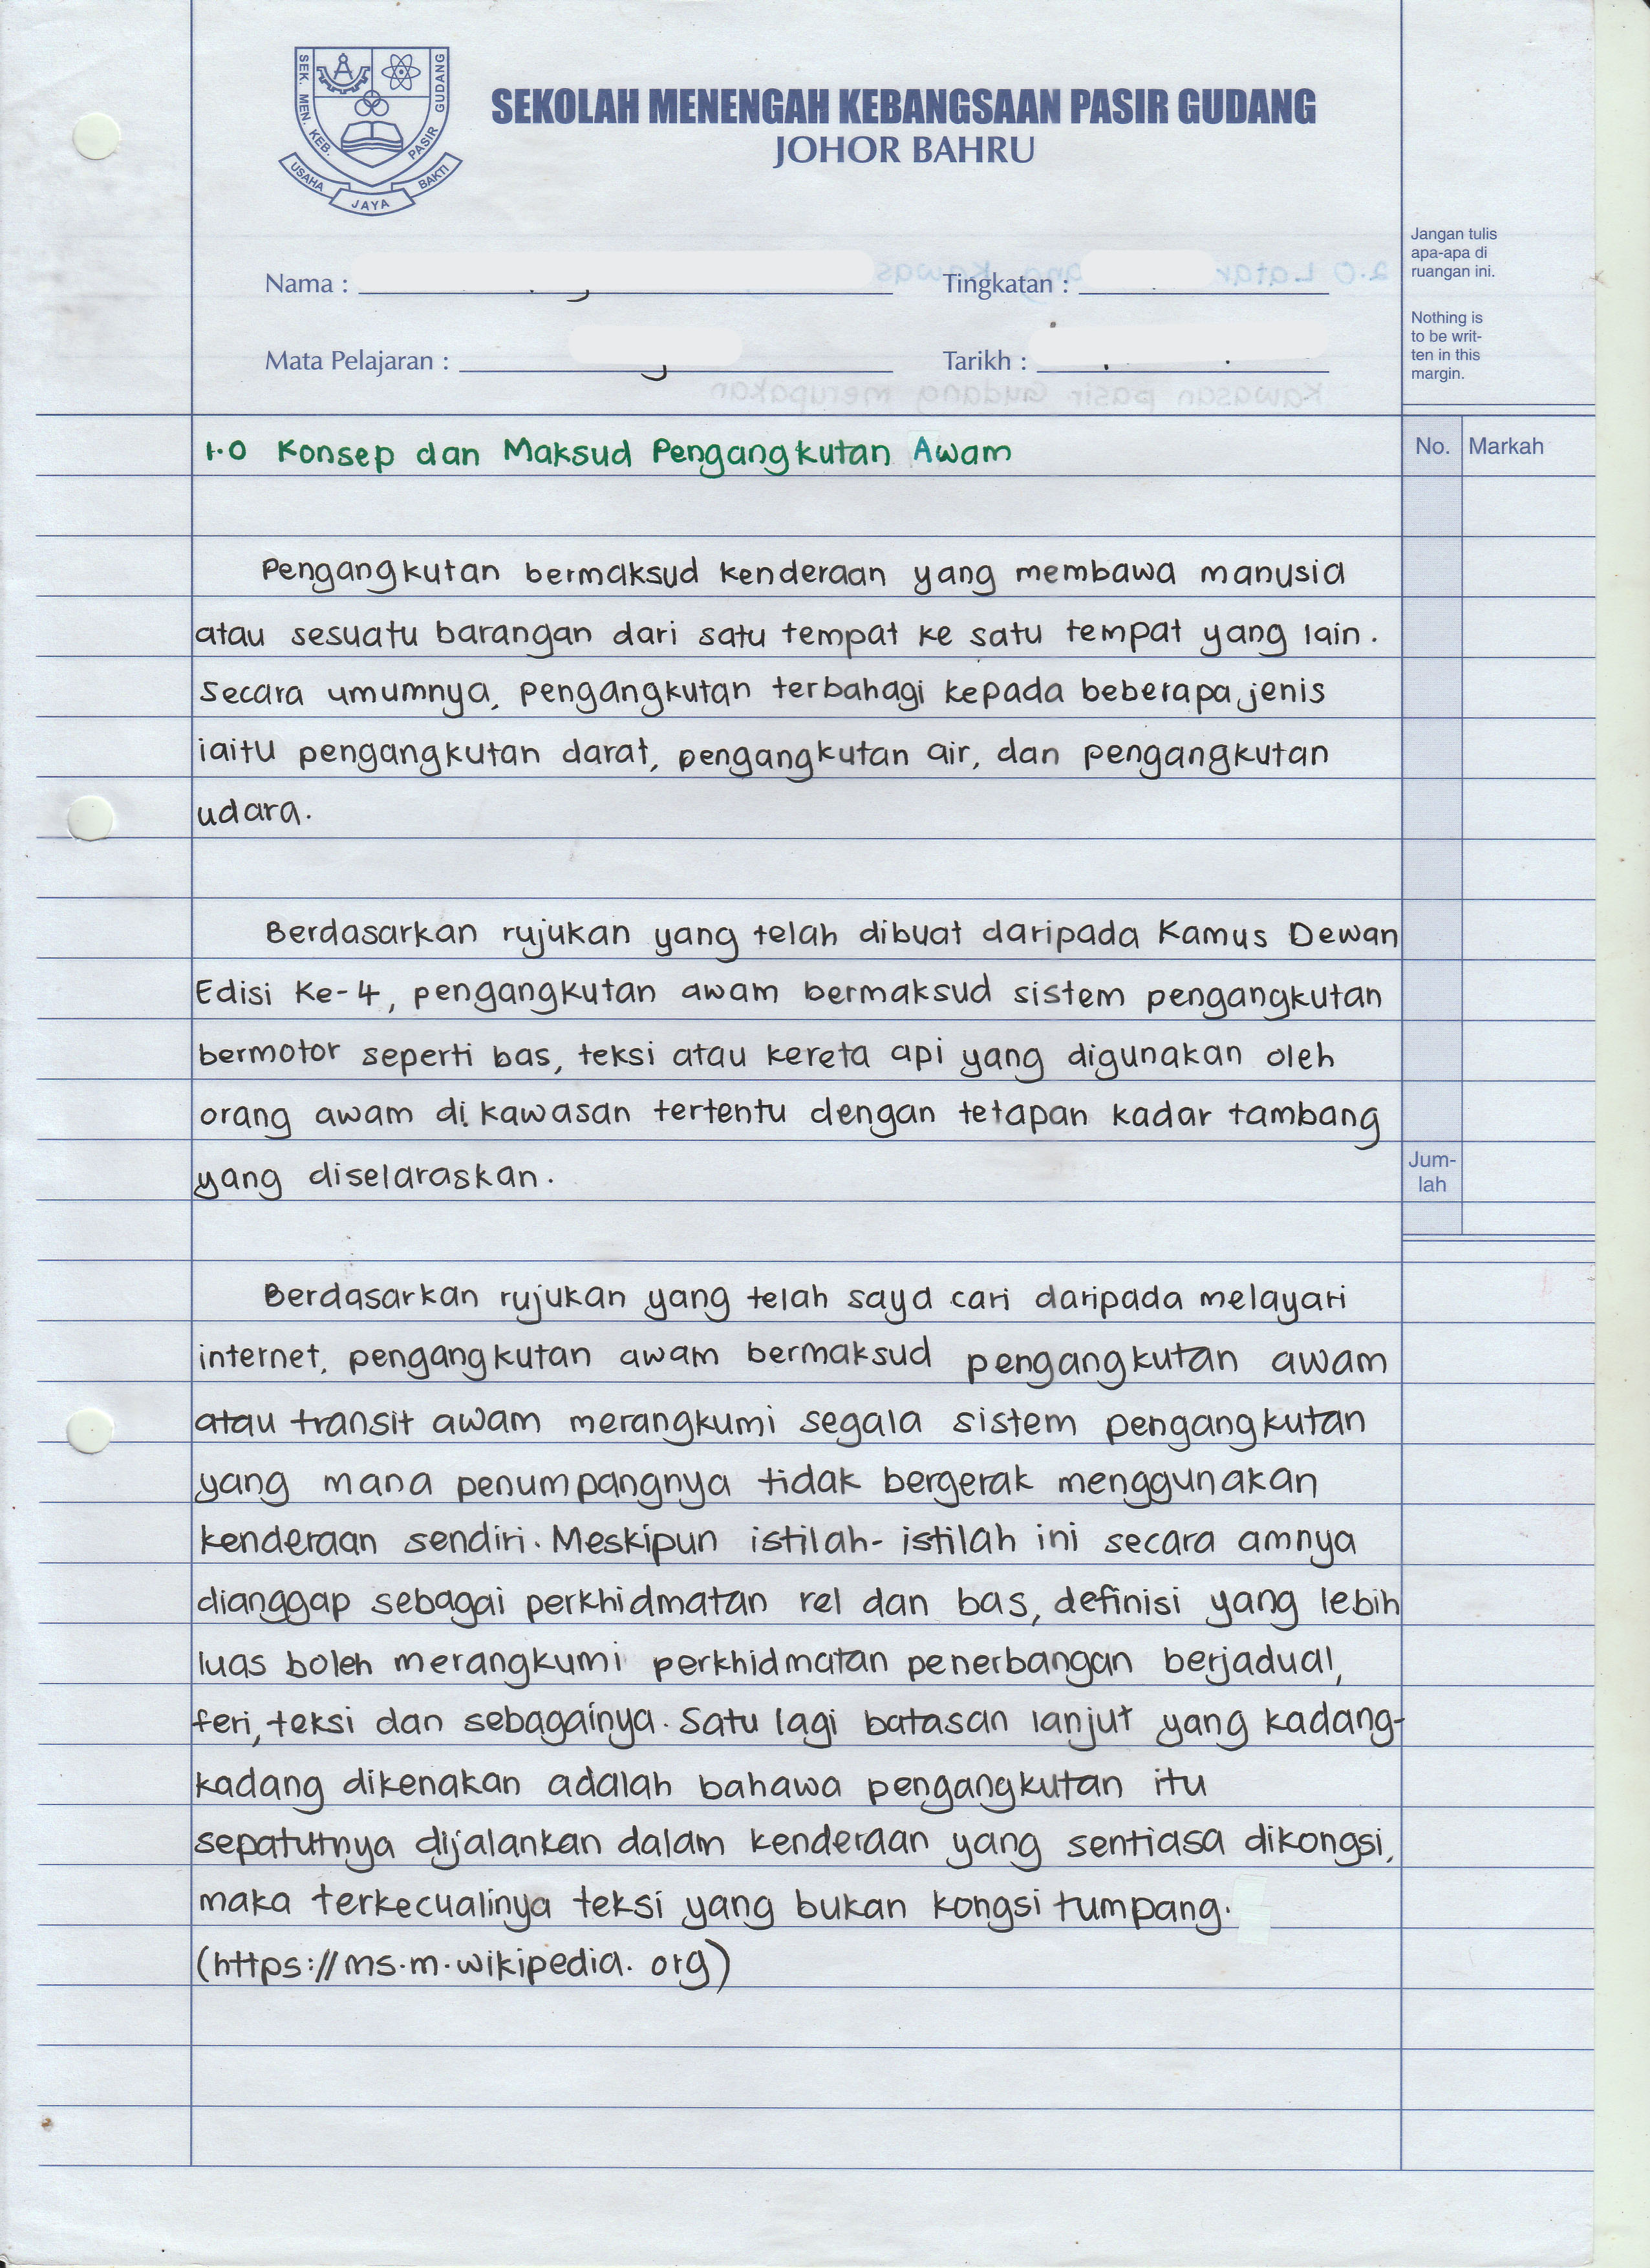 SEK. MEN. KEB. PASIR GUDANG
USAHA JAYA BAKTI
SEKOLAH MENENGAH KEBANGSAAN PASIR GUDANG
JOHOR BAHRU
Jangan tulis
apa-apa di
ruangan ini.
Nothing is
to be writ-
ten in this
margin.
Nama :
Tingkatan :
Mata Pelajaran :
Tarikh :
No. Markah
Jum-
lah
1.0 Konsep dan Maksud Pengangkutan Awam
Pengangkutan bermaksud kenderaan yang membawa manusia
atau sesuatu barangan dari satu tempat ke satu tempat yang lain.
Secara umumnya, pengangkutan terbahagi kepada beberapa jenis
iaitu pengangkutan darat, pengangkutan air, dan pengangkutan
udara.
Berdasarkan rujukan yang telah dibuat daripada Kamus Dewan
Edisi Ke-4, pengangkutan awam bermaksud sistem pengangkutan
bermotor seperti bas, teksi atau kereta api yang digunakan oleh
orang awam di kawasan tertentu dengan tetapan kadar tambang
yang diselaraskan.
Berdasarkan rujukan yang telah saya cari daripada melayari
internet, pengangkutan awam bermaksud pengangkutan awam
atau transit awam merangkumi segala sistem pengangkutan
yang mana penumpangnya tidak bergerak menggunakan
kenderaan sendiri. Meskipun istilah-istilah ini secara amnya
dianggap sebagai perkhidmatan rel dan bas, definisi yang lebih
luas boleh merangkumi perkhidmatan penerbangan berjadual,
feri, teksi dan sebagainya. Satu lagi batasan lanjut yang kadang-
kadang dikenakan adalah bahawa pengangkutan itu
sepatutnya dijalankan dalam kenderaan yang sentiasa dikongsi,
maka terkecualinya teksi yang bukan kongsi tumpang.
(https://ms.m.wikipedia.org)